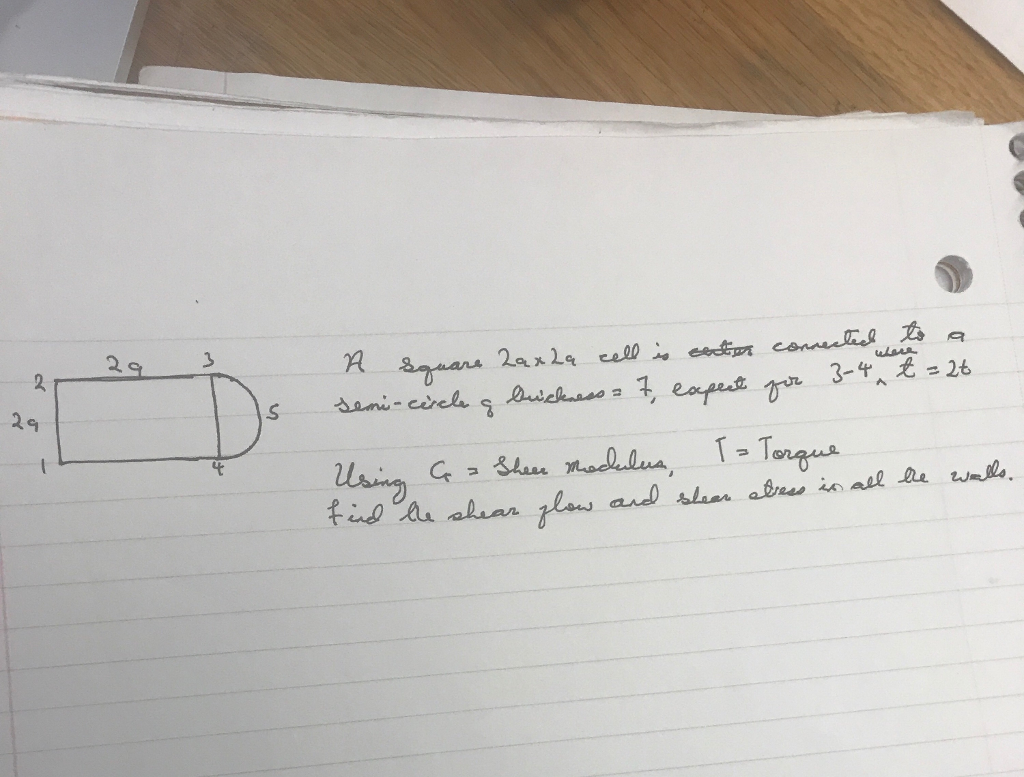 2a
3
2
2a
5
1
4
A square 2a x 2a cell is connected to a
semi-circle of thickness = 7, expect for 3-4 where t = 2t
Using G = Shear modulus, T = Torque
find the shear flow and shear stress in all the walls.